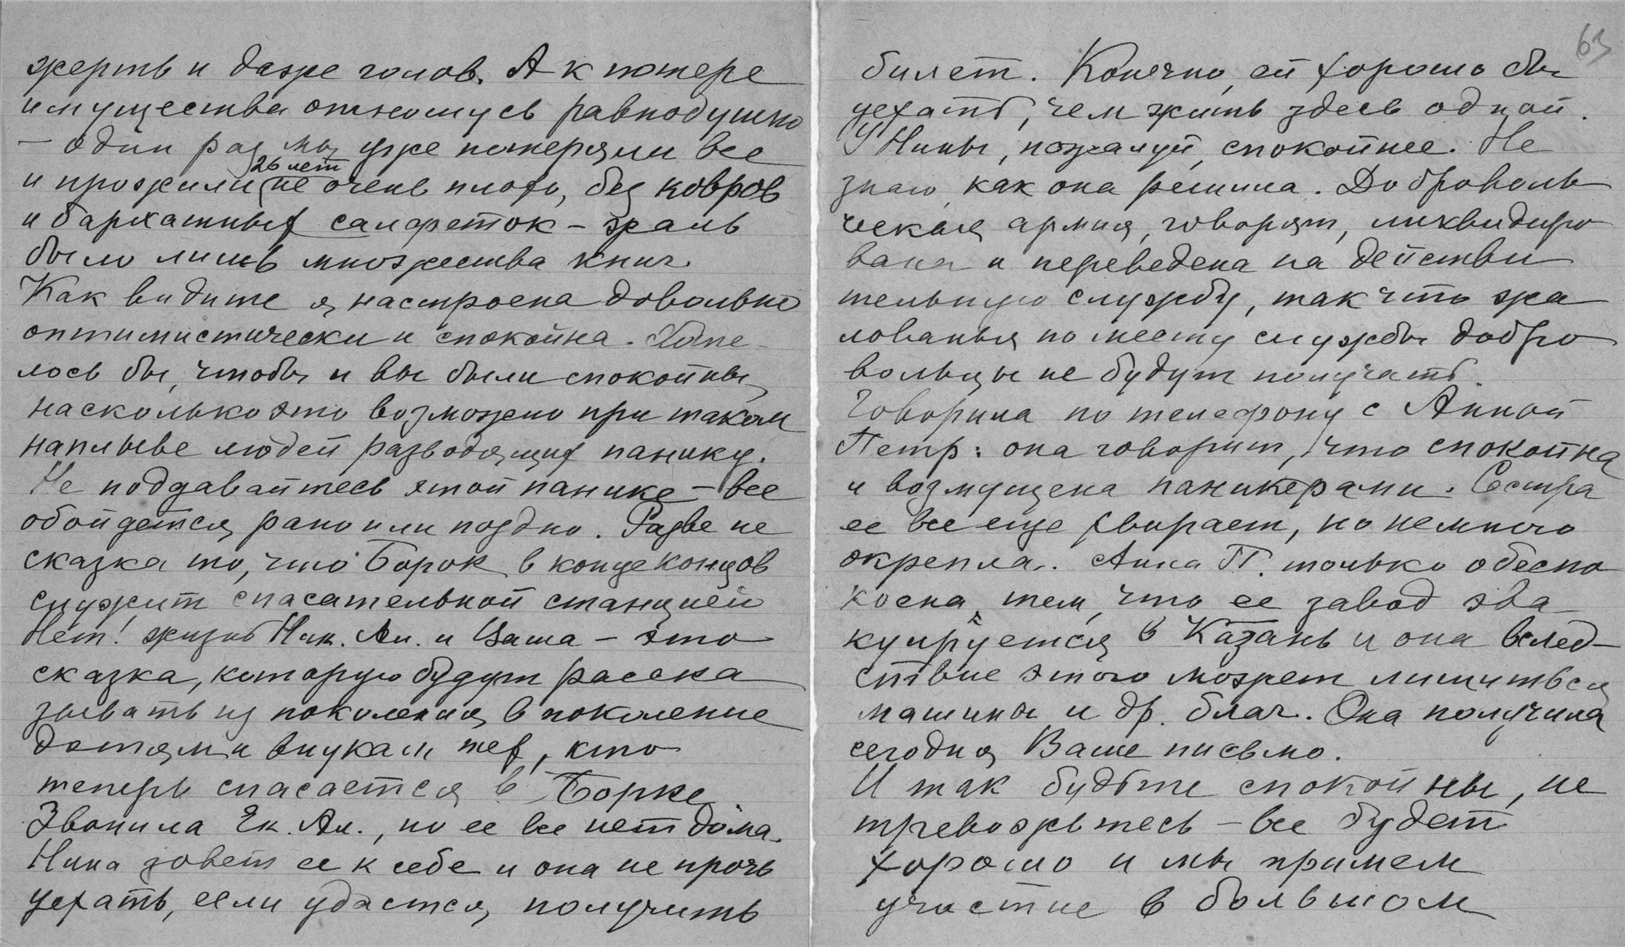 жертв и даже голов. А к потере
имущества отношусь равнодушно
– один раз мы уже потеряли все
26 лет
и прожили не очень плохо, без ковров
и бархатных салфеток – жаль
было лишь множества книг
Как видите я настроена довольно
оптимистически и спокойна. Хоте
лось бы, чтобы и вы были спокойны,
насколько это возможно при таком
наплыве людей разводящих панику.
Не поддавайтесь этой панике – все
обойдется рано или поздно. Разве не
сказка то, что Борок в конце концов
служит спасательной станцией
Нет! жизнь Ник. Ал. и Ваша – это
сказка, которую будут расска
зывать из поколения в поколение
детям и внукам тех, кто
теперь спасается в Борке
Звонила Ек. Ал., но ее все нет дома.
Нина зовет ее к себе и она не прочь
уехать, если удастся, получить
63
билет. Конечно, ей хорошо бы
уехать, чем жить здесь одной.
У Нины, пожалуй, спокойнее. Не
знаю, как она решила. Доброволь
ческая армия, говорят, ликвидиро
вана и переведена на действи
тельную службу, так что жа
лованья по месту службы добро
вольцы не будут получать.
Говорила по телефону с Анной
Петр: она говорит, что спокойна
и возмущена паникерами. Сестра
ее все еще хворает, но немного
окрепла. Анна П. только обеспо
коена тем, что ее завод эва
куируется в Казань и она вслед–
ствие этого может лишиться
машины и др. благ. Она получила
сегодня Ваше письмо.
И так будьте спокойны, не
тревожьтесь – все будет
хорошо и мы примем
участие в большом